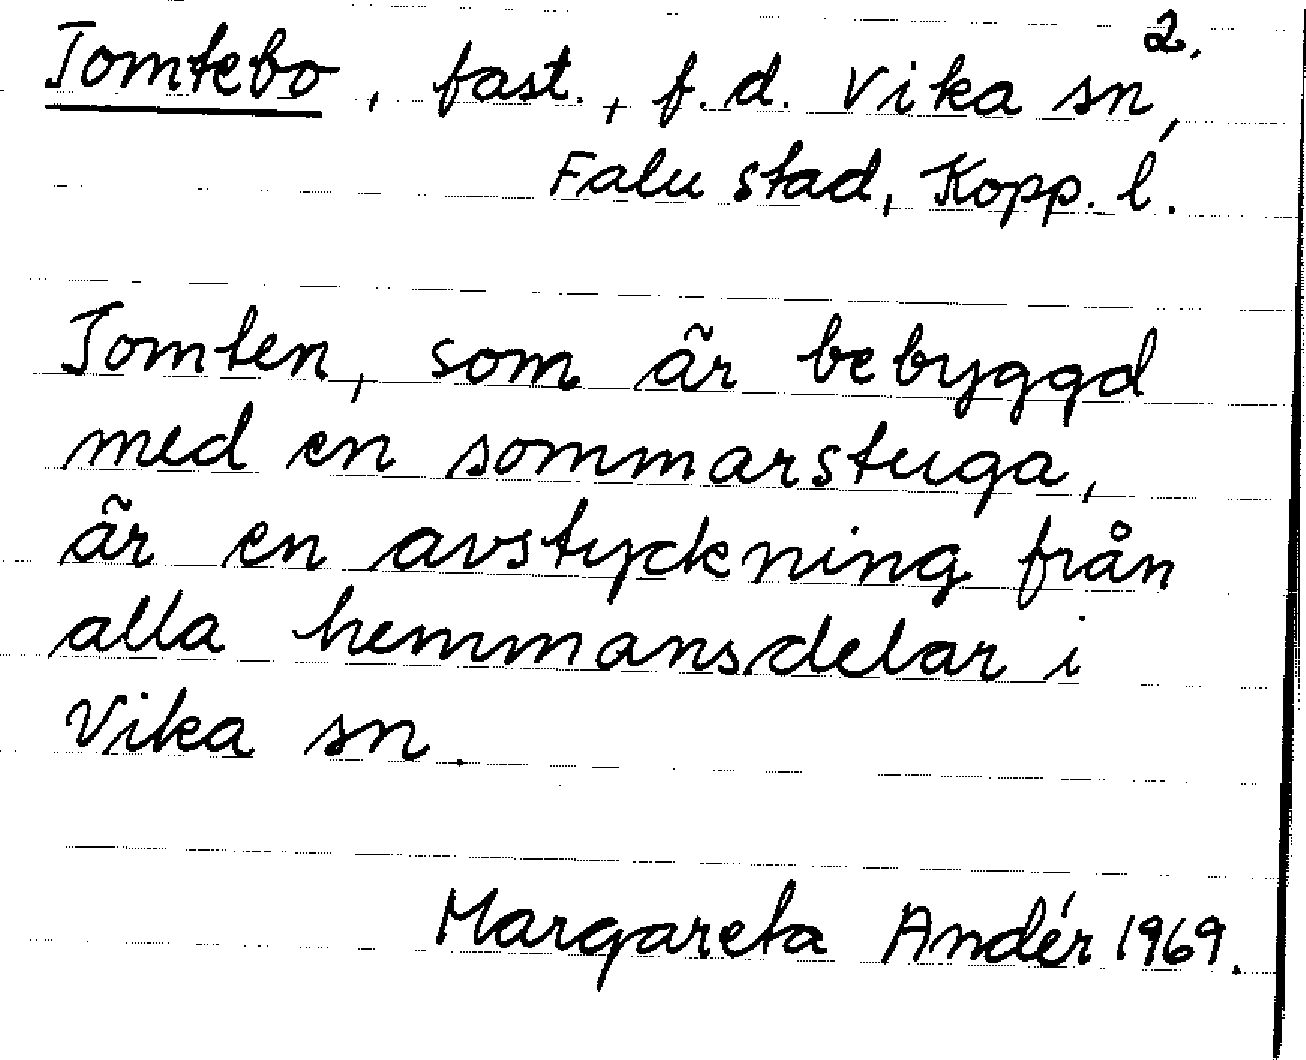 2.
Tomtebo, fast., f.d. Vika sn,
Falu stad, Kopp. l.
Tomten, som är bebyggd
med en sommarstuga,
är en avstyckning från
alla hemmansdelar i
Vika sn.
Margareta Andér 1969.